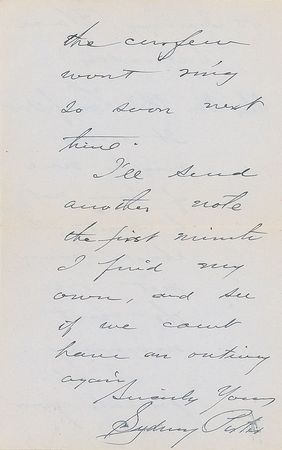 the curfew
wont ring
so soon next
time.
I'll send
another note
the first minute
I find my
own, and see
if we cant
have an outing
again
Sincerely Yours
Sydney Porter